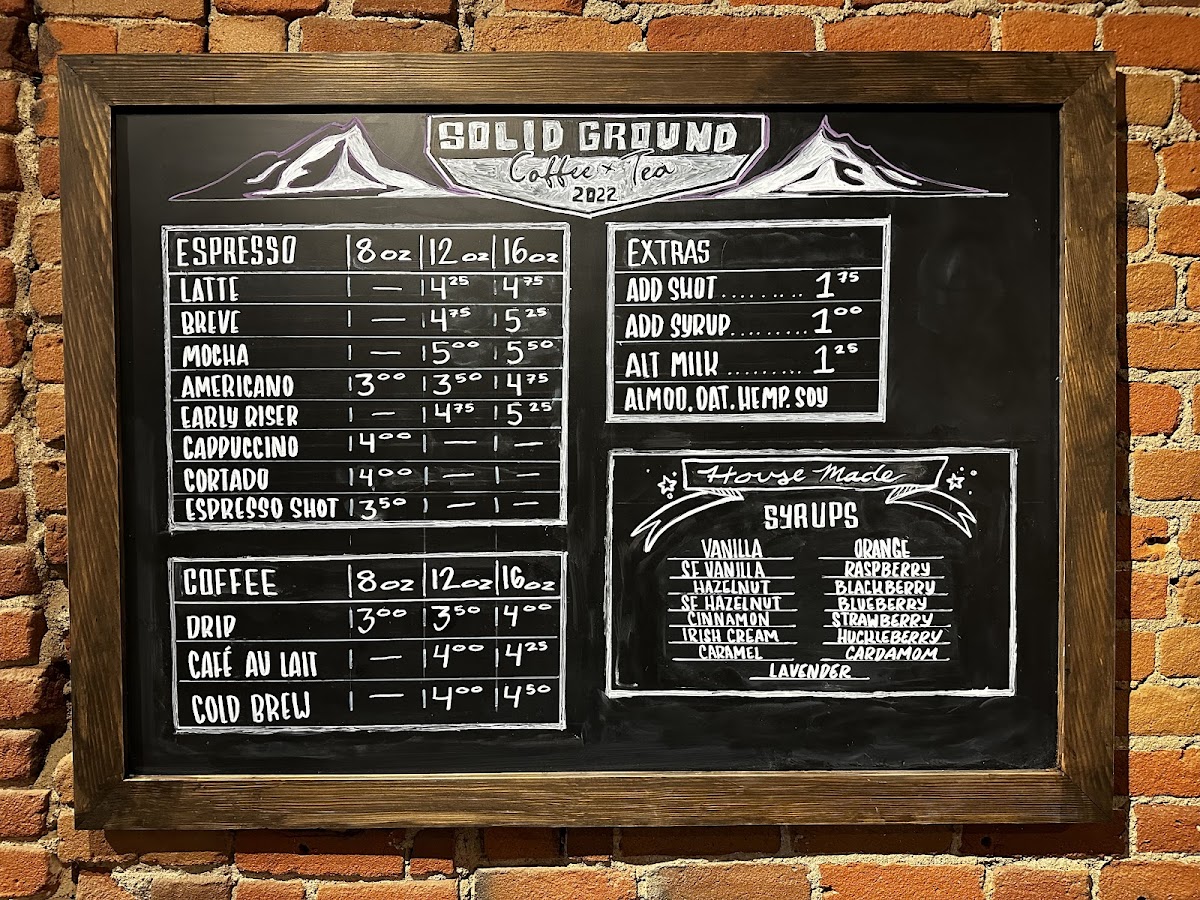 SOLID GROUND
Coffee × Tea
2022
ESPRESSO | 8 oz | 12 oz | 16 oz
LATTE | — | 4 25 | 4 75
BREVE | — | 4 75 | 5 25
MOCHA | — | 5 00 | 5 50
AMERICANO | 3 00 | 3 50 | 4 75
EARLY RISER | — | 4 75 | 5 25
CAPPUCCINO | 4 00 | — | —
CORTADO | 4 00 | — | —
ESPRESSO SHOT | 3 50 | — | —
COFFEE | 8 oz | 12 oz | 16 oz
DRIP | 3 00 | 3 50 | 4 00
CAFÉ AU LAIT | — | 4 00 | 4 25
COLD BREW | — | 4 00 | 4 50
EXTRAS
ADD SHOT ......... 1 75
ADD SYRUP ......... 1 00
ALT MILK ......... 1 25
ALMOD, OAT, HEMP, SOY
House Made
SYRUPS
VANILLA
SF VANILLA
HAZELNUT
SF HAZELNUT
CINNAMON
IRISH CREAM
CARAMEL
ORANGE
RASPBERRY
BLACKBERRY
BLUEBERRY
STRAWBERRY
HUCKLEBERRY
CARDAMOM
LAVENDER